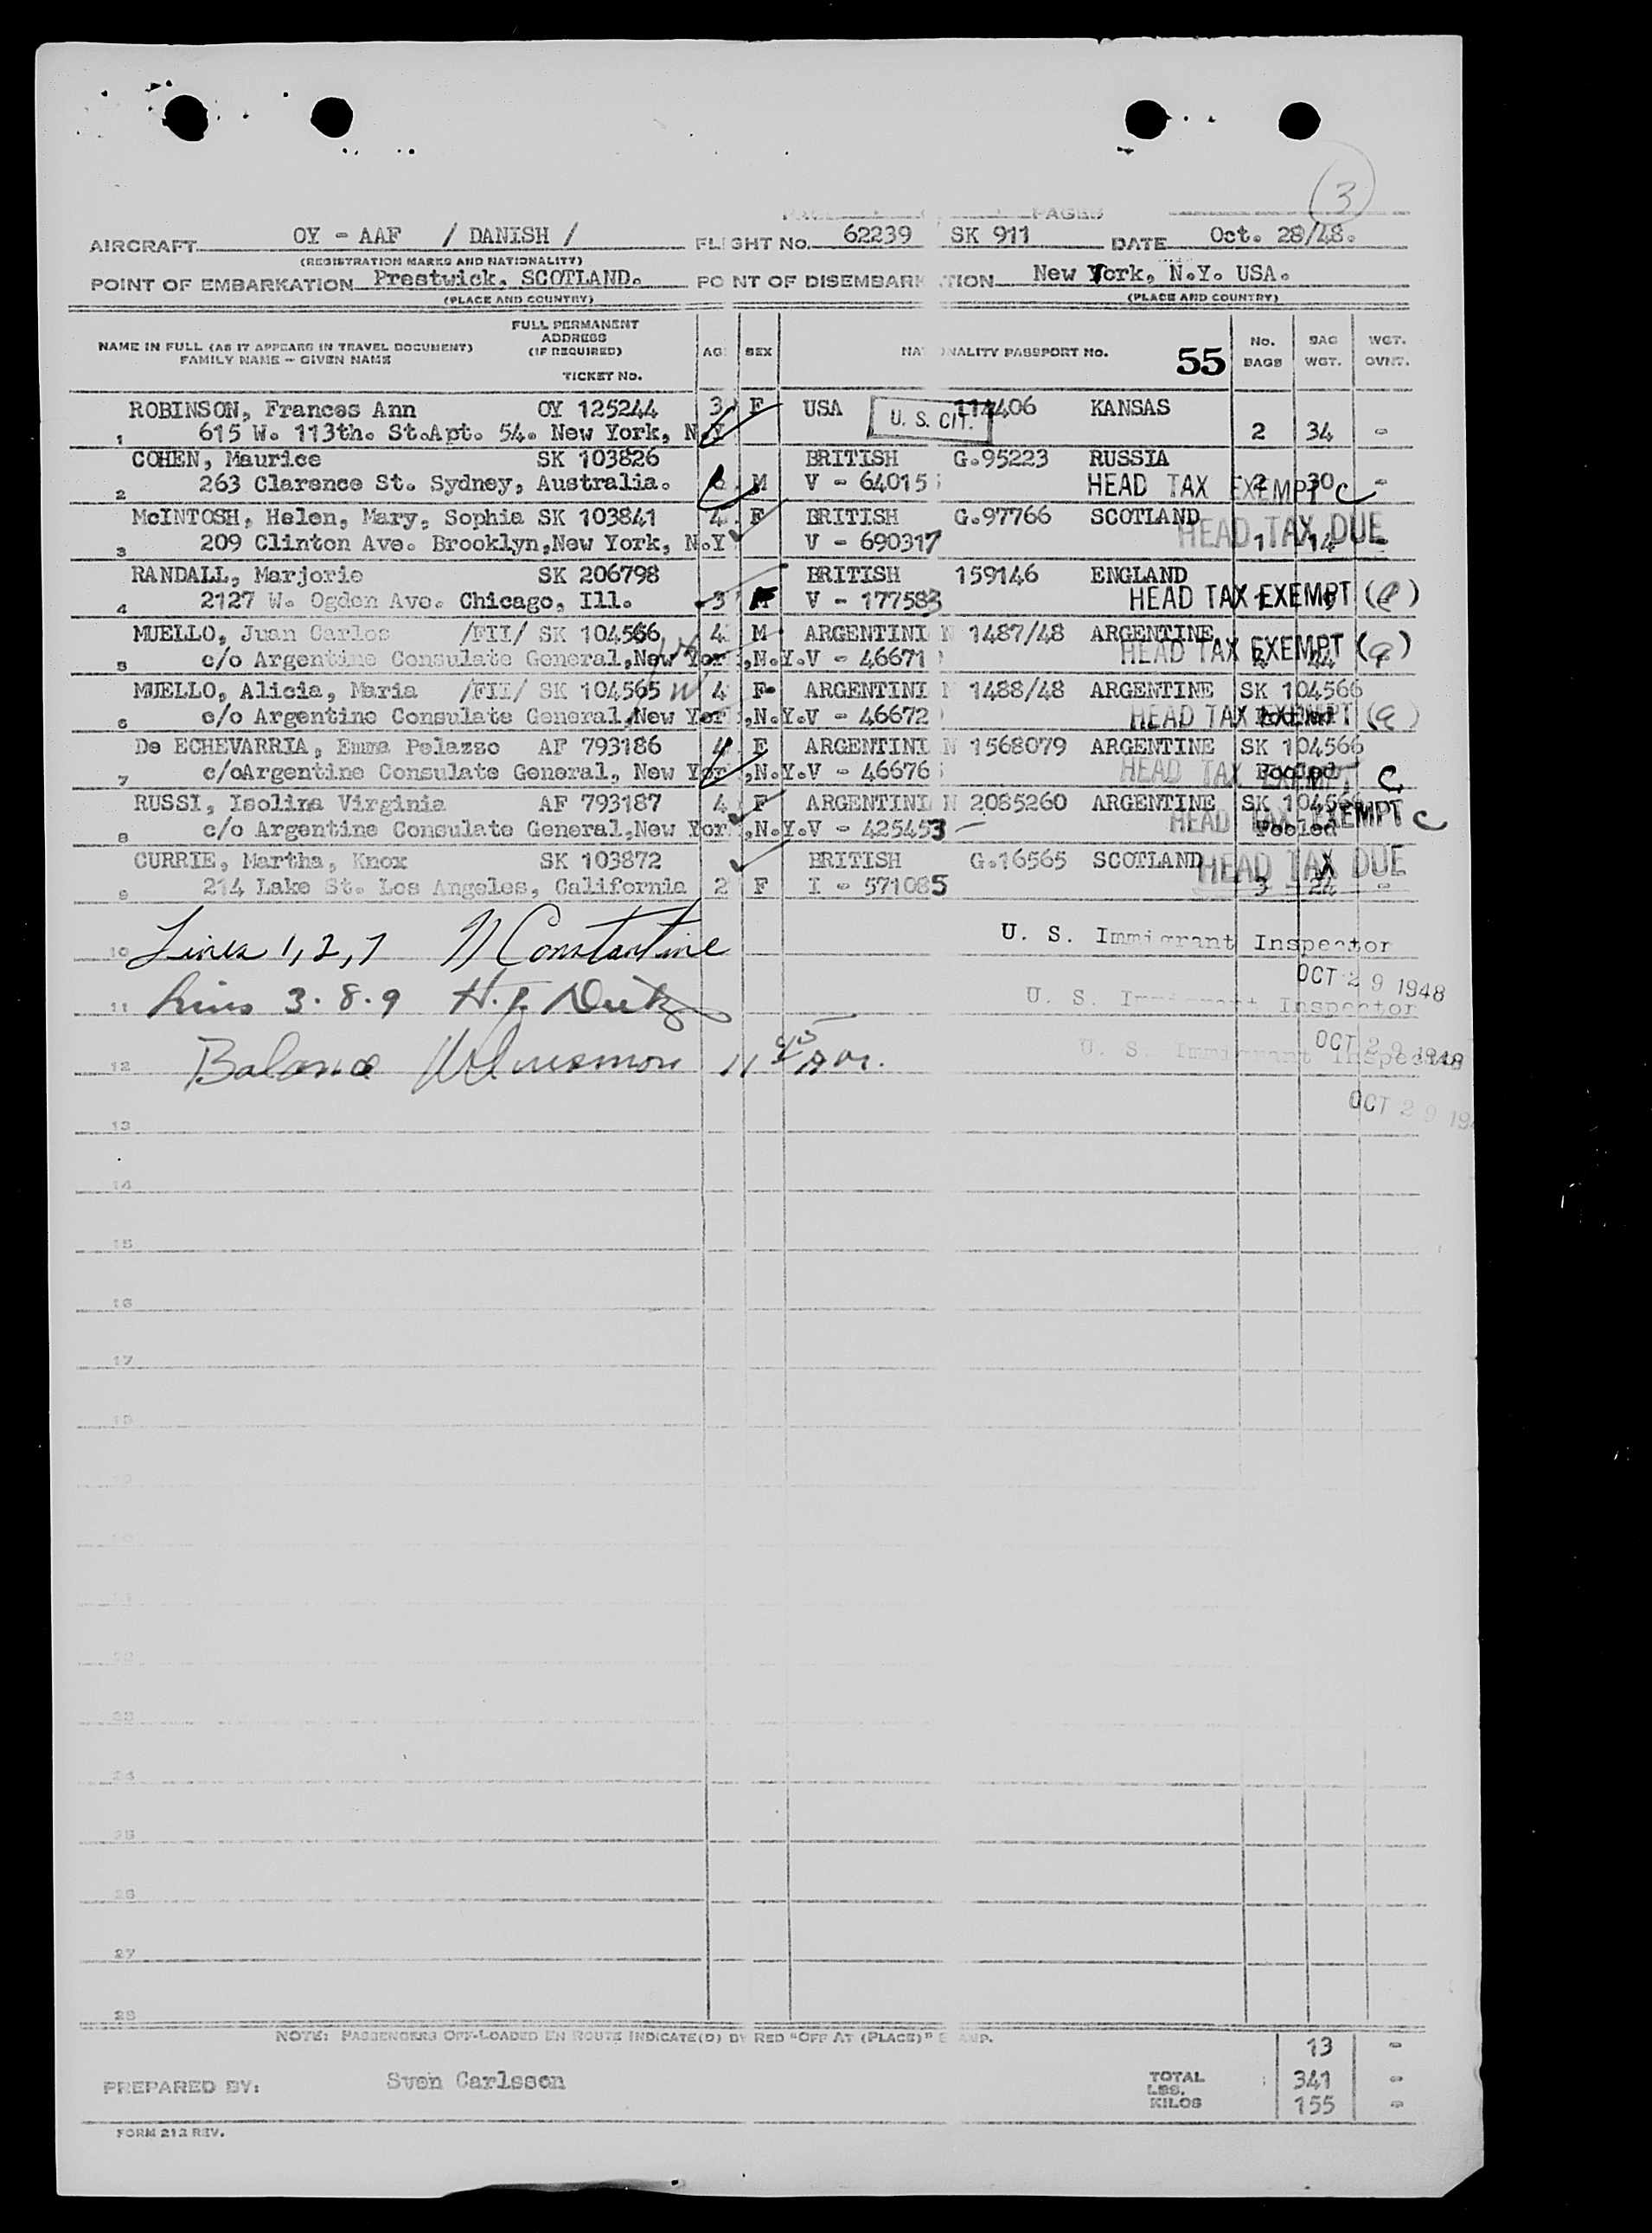 3
PAGES
AIRCRAFT OY - AAF / DANISH / FLIGHT No. 62239 SK 911 DATE Oct. 28/48.
(REGISTRATION MARKS AND NATIONALITY)
POINT OF EMBARKATION Prestwick. SCOTLAND. POINT OF DISEMBARKATION New York, N.Y. USA.
(PLACE AND COUNTRY) (PLACE AND COUNTRY)
NAME IN FULL (AS IT APPEARS IN TRAVEL DOCUMENT) FAMILY NAME - GIVEN NAME FULL PERMANENT ADDRESS (IF REQUIRED) TICKET No. AG SEX NATIONALITY PASSPORT No. 55 No. BAGS BAG WGT. WGT. OVWT.
ROBINSON, Frances Ann OY 125244 3 F USA U. S. CIT. 114406 KANSAS
1 615 W. 113th. St.Apt. 54. New York, N.Y 2 34 -
COHEN, Maurice SK 103826 BRITISH G.95223 RUSSIA
2 263 Clarence St. Sydney, Australia. M V - 64015 HEAD TAX EXEMPT C 2 30 -
McINTOSH, Helen, Mary, Sophia SK 103841 4 F BRITISH G.97766 SCOTLAND HEAD TAX DUE
3 209 Clinton Ave. Brooklyn,New York, N.Y V - 690317 1 14 -
RANDALL, Marjorie SK 206798 BRITISH 159146 ENGLAND
4 2127 W. Ogden Ave. Chicago, Ill. 3 F V - 177583 HEAD TAX EXEMPT
MUELLO, Juan Carlos /FII/ SK 104566 4 M ARGENTINI N 1487/48 ARGENTINE
5 c/o Argentine Consulate General,New Yor ,N.Y.V - 46671 HEAD TAX EXEMPT
MUELLO, Alicia, Maria /FII/ SK 104565 4 F ARGENTINI N 1488/48 ARGENTINE SK 104566
6 c/o Argentine Consulate General,New Yor ,N.Y.V - 46672 HEAD TAX EXEMPT Pooled
De ECHEVARRIA, Emma Pelazzo AF 793186 4 F ARGENTINI N 1568079 ARGENTINE SK 104566
7 c/oArgentine Consulate General, New Yor ,N.Y.V - 46676 HEAD TAX EXEMPT Pooled C
RUSSI, Isolina Virginia AF 793187 4 F ARGENTINI N 2085260 ARGENTINE SK 104566
8 c/o Argentine Consulate General,New Yor ,N.Y.V - 425453 HEAD TAX EXEMPT Pooled C
CURRIE, Martha, Knox SK 103872 BRITISH G.16565 SCOTLAND HEAD TAX DUE
9 214 Lake St. Los Angeles, California 2 F I - 571085 3 24 -
10 Lines 1, 2, 7 N Constantine U. S. Immigrant Inspector
OCT 29 1948
11 Lines 3. 8. 9 U. S. Immigrant Inspector
OCT 29 1948
12 Balance U. S. Immigrant Inspector
OCT 29 194
13
14
15
16
17
18
19
22
23
24
25
26
27
28
NOTE: PASSENGERS OFF-LOADED EN ROUTE INDICATE(D) BY RED "OFF AT (PLACE)" STAMP.
13 -
PREPARED BY: Sven Carlsson TOTAL LBS. 341 -
KILOS 155 -
FORM 212 REV.